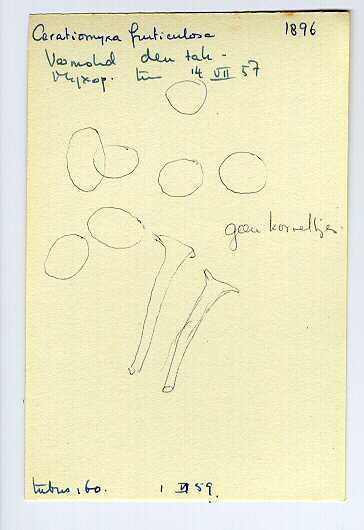 Ceratiomyxa fruticulosa 1896
Vermolmd den tak.
14 VII 57
geen korreltjes.
tubus 160. 1 VI 59.